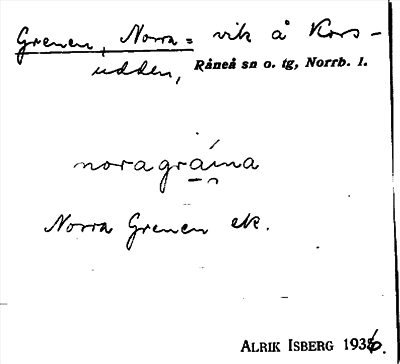 Grenen, Norra = vik å Kors-
udden, Råneå sn o. tg, Norrb. l.
noragrána
Norra Grenen ek.
ALRIK ISBERG 1936.